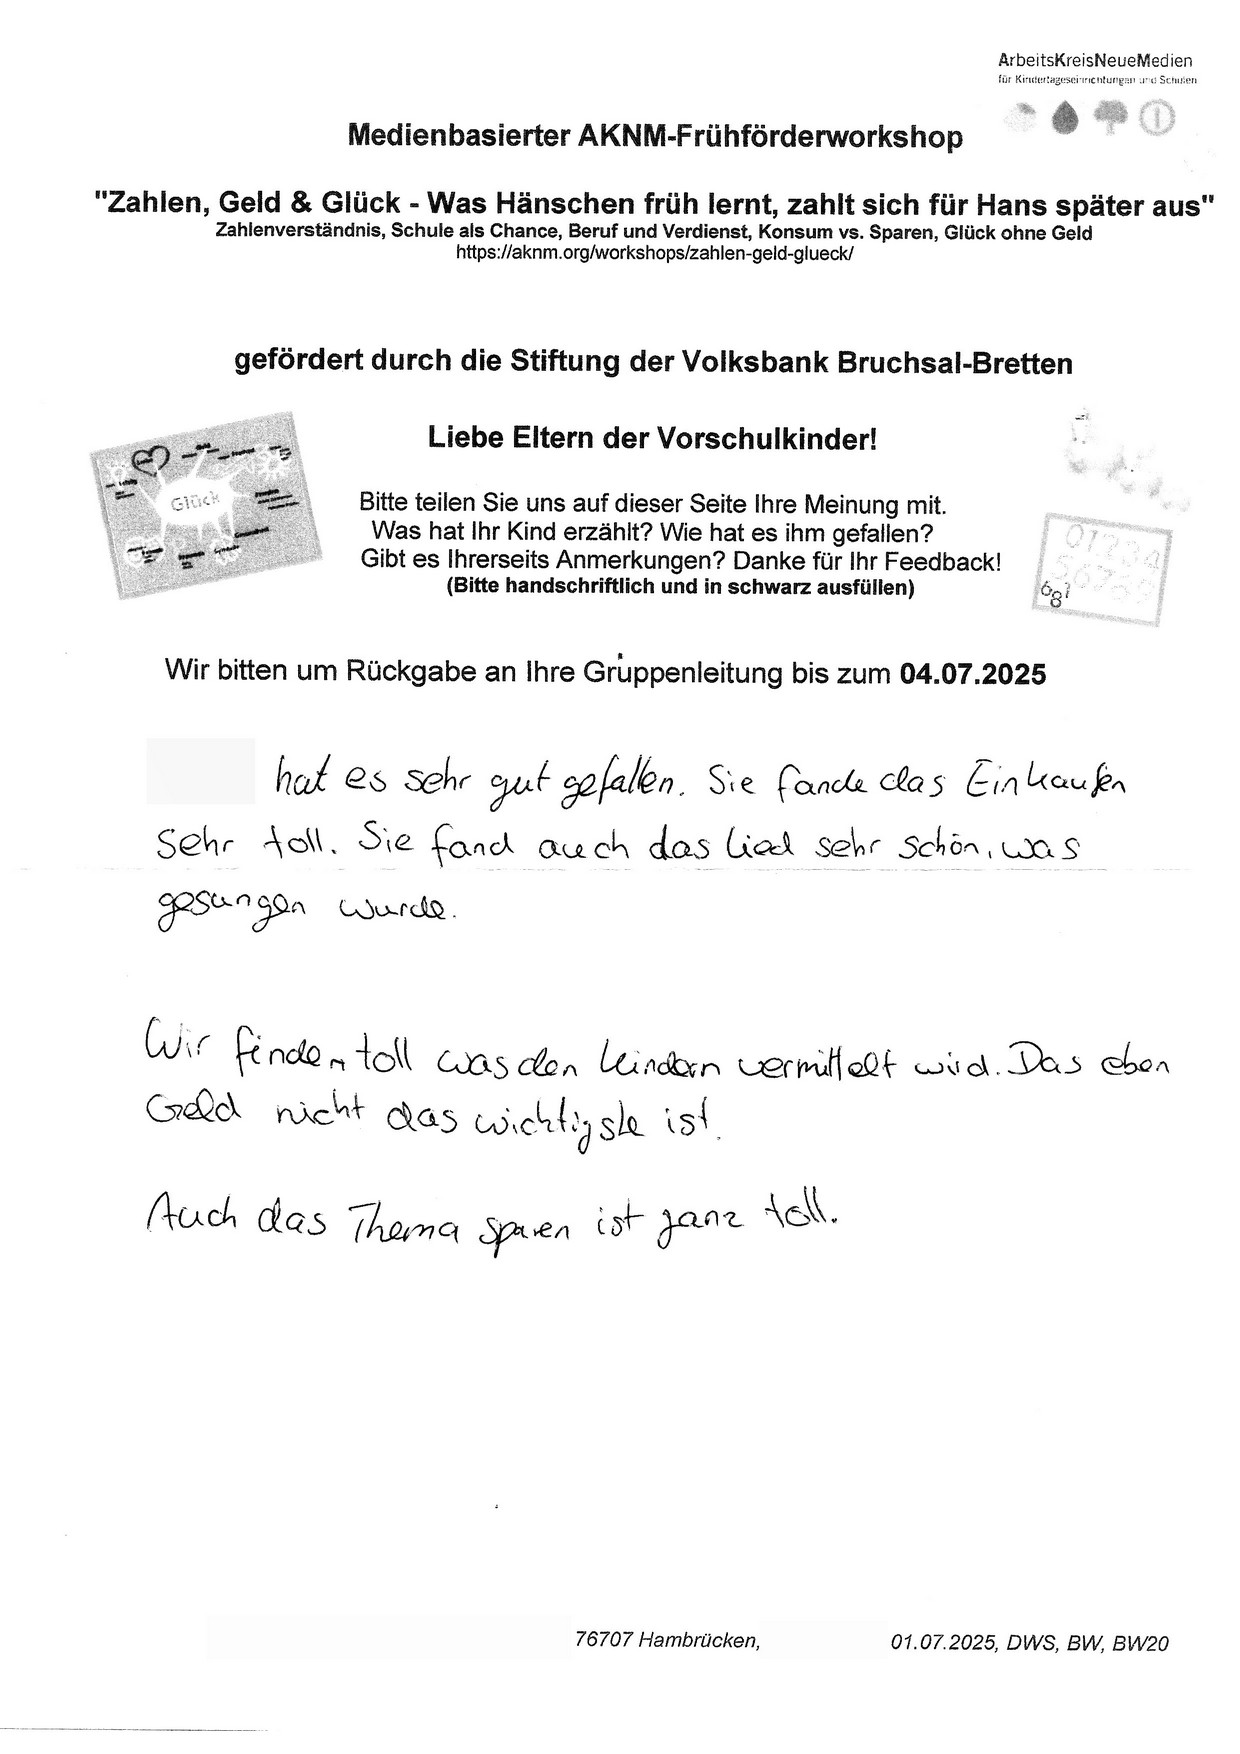 ArbeitsKreisNeueMedien
für Kindertageseinrichtungen und Schulen
Medienbasierter AKNM-Frühförderworkshop
"Zahlen, Geld & Glück - Was Hänschen früh lernt, zahlt sich für Hans später aus"
Zahlenverständnis, Schule als Chance, Beruf und Verdienst, Konsum vs. Sparen, Glück ohne Geld
https://aknm.org/workshops/zahlen-geld-glueck/
gefördert durch die Stiftung der Volksbank Bruchsal-Bretten
Liebe Eltern der Vorschulkinder!
Glück
Bitte teilen Sie uns auf dieser Seite Ihre Meinung mit.
Was hat Ihr Kind erzählt? Wie hat es ihm gefallen?
Gibt es Ihrerseits Anmerkungen? Danke für Ihr Feedback!
(Bitte handschriftlich und in schwarz ausfüllen)
01234
56789
Wir bitten um Rückgabe an Ihre Gruppenleitung bis zum 04.07.2025
hat es sehr gut gefallen. Sie fande das Einkaufen
sehr toll. Sie fand auch das Lied sehr schön, was
gesungen wurde.
Wir finden toll was den Kindern vermittelt wird. Das eben
Geld nicht das wichtigste ist.
Auch das Thema sparen ist ganz toll.
76707 Hambrücken, 01.07.2025, DWS, BW, BW20